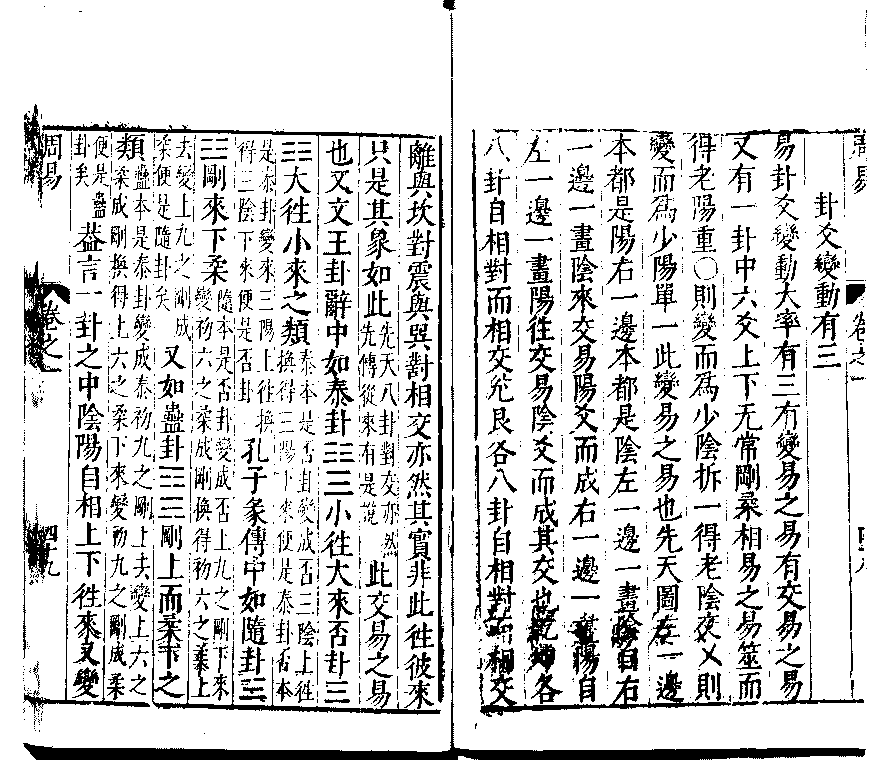 周易
卷之一
四十八
卦爻變動有三
易卦爻變動大率有三有變易之易有交易之易
又有一卦中六爻上下无常剛柔相易之易筮而
得老陽重〇則變而爲少陰拆一得老陰交乂則
變而爲少陽單一此變易之易也先天圖左一邊
本都是陽右一邊本都是陰左一邊一畫陰自右
一邊一畫陰來交易陽爻而成右一邊一畫陽自
左一邊一畫陽徃交易陰爻而成其交也乾坤各
八卦自相對而相交兊艮各八卦自相對而相交
離與坎對震與巽對相交亦然其實非此徃彼來
只是其象如此先天八卦對交亦然先傳從來有是說此交易之易
也又文王卦辭中如泰卦☷☰小徃大來否卦☰
☷大徃小來之類泰本是否卦變成否三陰上徃換得三陽下來便是泰卦否本是泰卦變來三陽上徃換得三陰下來便是否卦孔子彖傳中如隨卦☱
☳剛來下柔隨本是否卦變成否上九之剛下來變初六之柔成剛換得初六之柔上去變上九之剛成柔便是隨卦矣又如蠱卦☶☴剛上而柔下之
類蠱本是泰卦變成泰初九之剛上去變上六之柔成剛換得上六之柔下來變初九之剛成柔便是蠱卦矣葢言一卦之中陰陽自相上下徃來又變
周易
卷之一
四十九